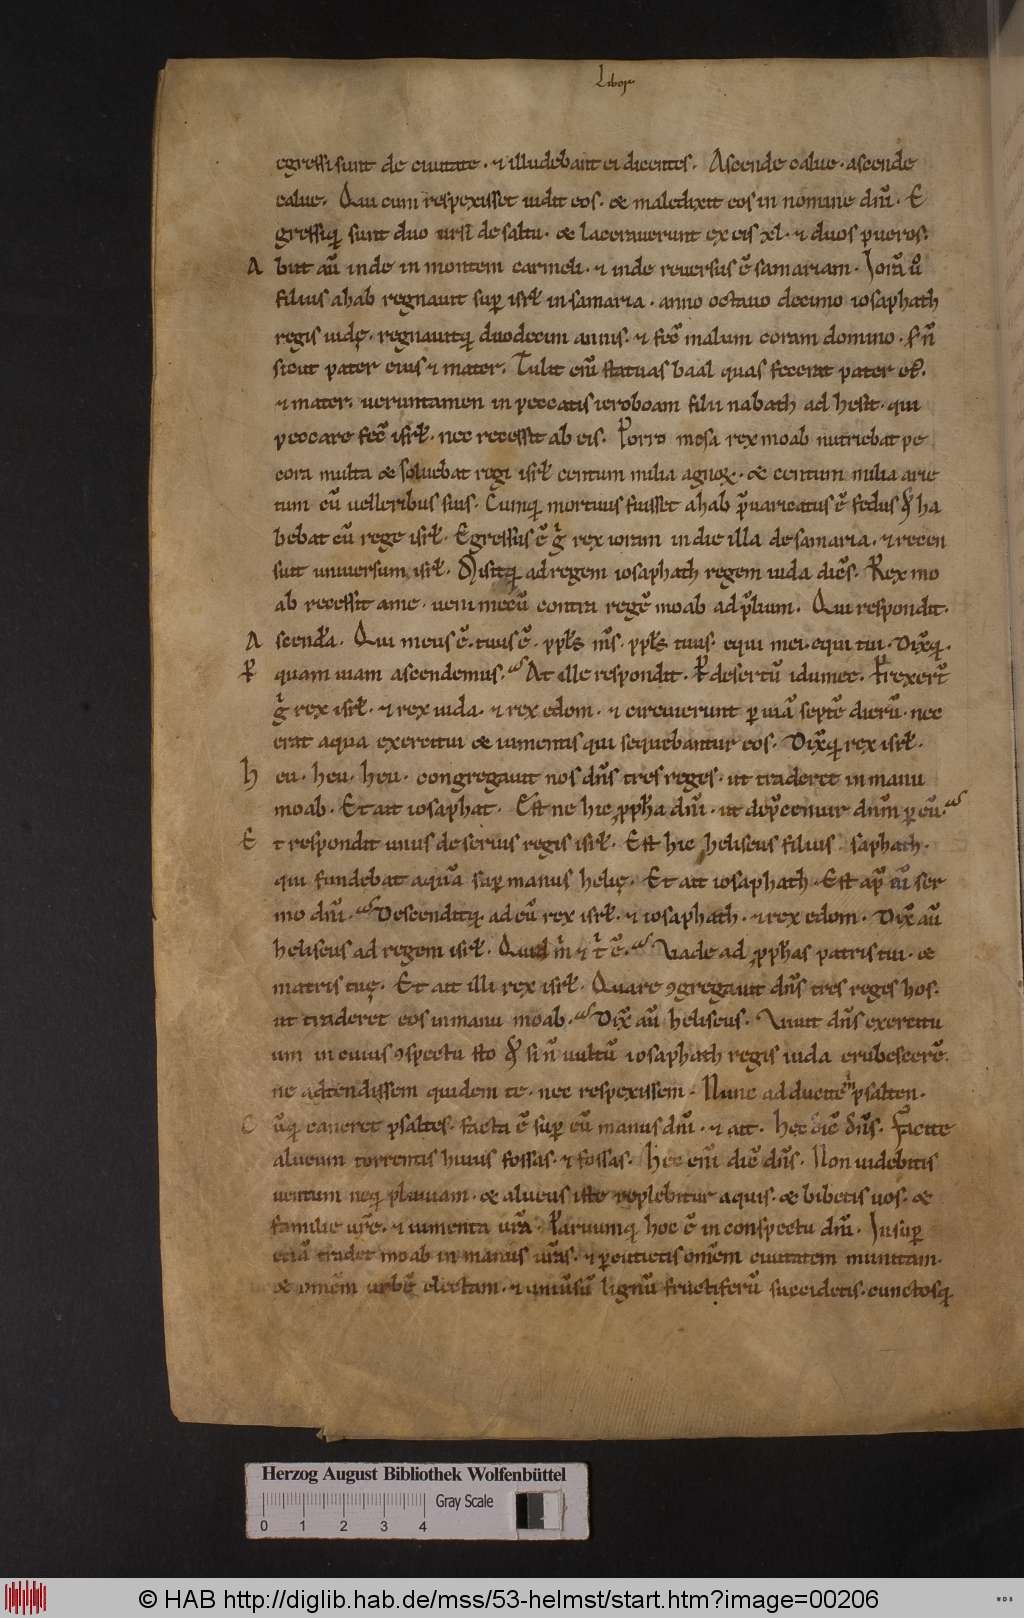 Liber
egressi sunt de ciuitate · et illudebant ei dicentes. Ascende calue · ascende
calue. Qui cum respexisset uidit eos · et maledixit eos in nomine dñi · E
gressiq; sunt duo ursi de saltu · et lacerauerunt ex eis xl · et duos pueros.
A biit aū inde in montem carmeli · et inde reuersus ē samariam · Iorā ů
filius ahab regnauit sup̄ isrł in samaria · anno octauo decimo iosaphath
regis iudę · regnauitq; duodecim annis · et fec̄ malum coram domino · s; ñ
sicut pater eius et mater. Tulit eni̅ statuas baal quas fecerat pater ei9.
et mater. ueruntamen in peccatis ieroboam filii nabath adhesit · qui
peccare fec̄ isrł · nec recessit ab eis. Porro mesa rex moab nutriebat pe
cora multa et soluebat regi isrł centum milia agnoꝝ · et centum milia arie
tum cū uelleribus suis. Cumq; mortuus fuisset ahab p̄uaricatus ē fedus qđ ha
bebat cū rege isrł. Egressus ē g̊ rex ioram in die illa de samaria · et recen
suit uniuersum isrł. Misitq; ad regem iosaphath regem iuda dicēs. Rex mo
ab recessit a me · ueni mecū contra regē moab ad p̄lium. Qui respondit.
A scendā. Qui meus ē · tuus ē · ppłs m̄s · ppłs tuus · equi mei · equi tui · Dix̄q; ·
P quam uiam ascendemus. At ille respondit. P̄ desertū idumee. Perrexerт̄
g̊ rex isrł · et rex iuda · et rex edom · et circuierunt p uiā septē dierū · nec
erat aqua exercitui et iumentis qui sequebantur eos. Dix̄q; rex isrł.
h eu · heu · heu · congregauit nos dñs tres reges · ut traderet in manu
moab. Et ait iosaphat. Est ne hic ppħa dñi · ut dep̄cemur dnm p eū.
E t respondit unus de seruis regis isrł. Est hic heliseus filius saphath.
qui fundebat aquā sup̄ manus helię. Et ait iosaphath. Est ap̄ eū ser
mo dñi. Descenditq; ad eū rex isrł · et iosaphath · et rex edom. Dix̄ aū
heliseus ad regem isrł. Quid m̊ et t̊ ē. Vade ad ppħas patris tui · et
matris tuę. Et ait illi rex isrł. Quare ꝯgregauit dñs tres reges hos.
ut traderet eos in manu moab. Dix̄ aū heliseus. Viuit dñs exercitu
um in cuius ꝯspectu sto qđ si ñ uultū iosaphath regis iuda erubescerē.
ne adtendissem quidem te · nec respexissem. Nunc adducite m̊ psalten.
C ūq; caneret psaltes · facta ē sup̄ eū manus dñi · et ait. Hec dic̄ dñs. Facite
alueum torrentis huius fossas · et fossas. Hec eni̅ dic̄ dñs. Non uidebitis
uentum neq; pluuiam · et alueus iste replebitur aquis · et bibetis uos · et
familie ur̄e · et iumenta ur̄a. Paruumq; hoc ē in conspectu dñi. Insup̄
etiā tradet moab in manus ur̄as · et p̄cutietis omēm ciuitatem munitam.
et omēm urbē electam · et uniūsū lignū fructiferū succidetis · cunctosq;
Herzog August Bibliothek Wolfenbüttel
Gray Scale
0 1 2 3 4
© HAB http://diglib.hab.de/mss/53-helmst/start.htm?image=00206